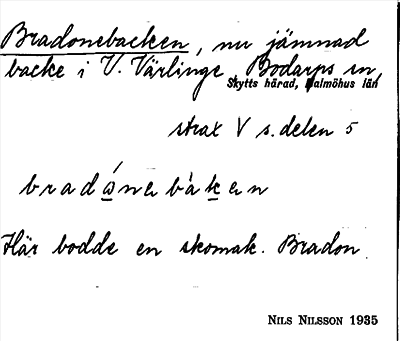 Bradonebacken, nu jämnad
backe i V. Värlinge, Bodarps sn,
Skytts härad, Malmöhus län
strax V s. delen 5
bradónebàken
Här bodde en skomak. Bradon
NILS NILSSON 1935